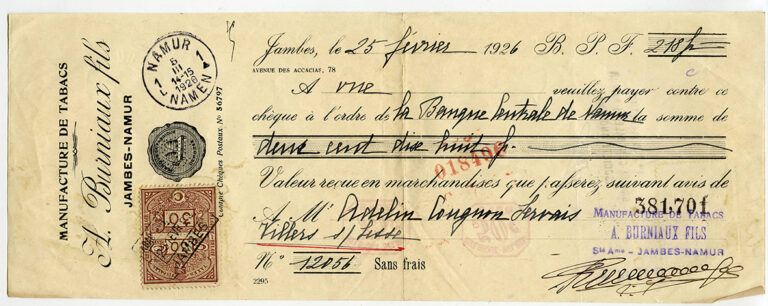 MANUFACTURE DE TABACS
A. Burniaux fils
JAMBES-NAMUR
Compte Chèques Postaux N° 56797
NAMUR 1
6
III
14-15
1926
1 NAMEN
Jambes, le 25 février 1926 B. P. F. 218 f
AVENUE DES ACCACIAS, 78
A vue veuillez payer contre ce
chèque à l'ordre de la Banque Centrale de Namur la somme de
deux cent dix huit f
018496
Valeur reçue en marchandises que passerez suivant avis de
381.701
A Mr Adelin Cougnon Servais
Villers s/ Lesse
MANUFACTURE DE TABACS
A. BURNIAUX FILS
Sté Ame - JAMBES-NAMUR
N° 12056 Sans frais
2295